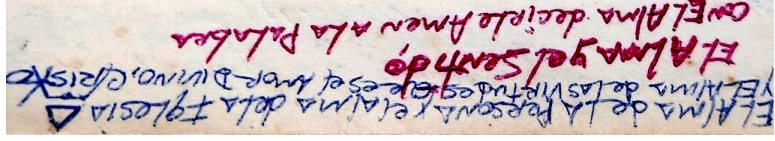 EL Alma de LA PERSONA y el alma de la Iglesia
Y EL Alma de las VIRTUDES que es el AMOR DIVINO, CRISTO
EL Alma y el Sentido,
con EL Alma decirle Amen a La Palabra